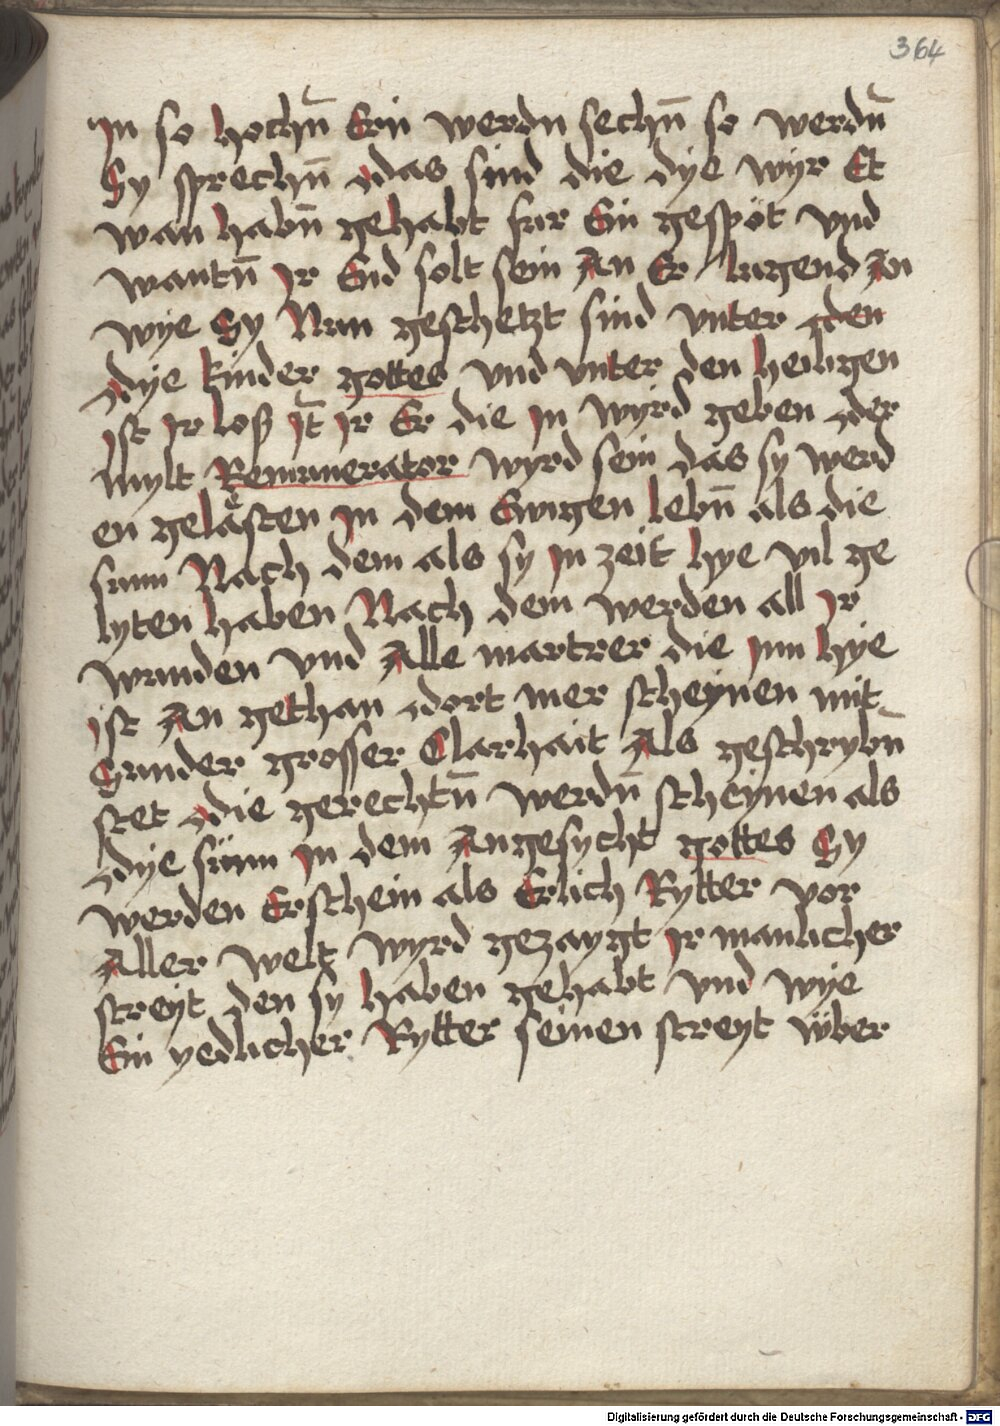 364
In so hochn̄ Ern werdn sechn̄ so werdn̄
Sy sprechn̄ das sind die dye wyr Et
wan habn̄ gehabt fur Ein gespöt vnd
wantn̄ Ir End solt sein An Er lugend An
wye Sy Nun geschetzt sind vnter den
dye kinder gottes vnd vnter den heiligen
ist Ir loß It̄ Ir Er die In wyrd geben der
mylt Remunerator wyrd sein das sy werd
en gelästen In dem Ewigen lebn̄ als die
sunn Nach dem als sy In zeit hye vil ge
lyten haben Nach dem werden all Ir
wunden vnd Alle martrer die Inn hye
ist An gethan dort mer scheynen mit
Sunder grosser Clarhait Als geschrybn̄
stet die gerechtn̄ werdn̄ scheynen als
dye sünn In dem Angesycht gottes Sy
werden Erschein als Erlich Rytter vor
Aller welt wyrd gezaygt Ir manlicher
streyt den sy haben gehabt vnd wye
Ein yedlicher Rytter seinen streyt über
Digitalisierung gefördert durch die Deutsche Forschungsgemeinschaft - DFG